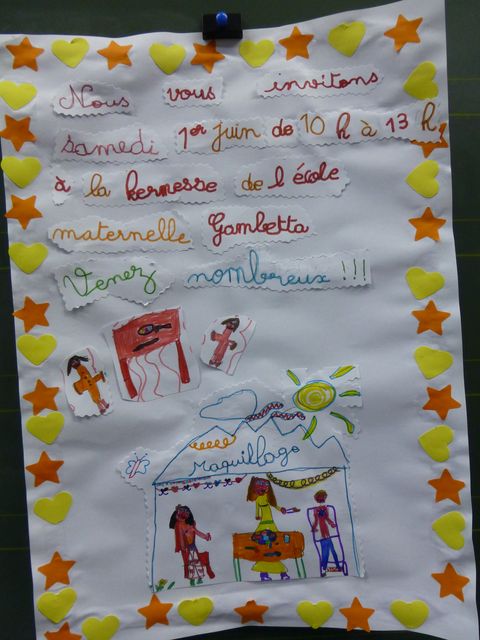 Nous vous invitons
samedi 1er juin de 10 h à 13 h
à la kermesse de l école
maternelle Gambetta
Venez nombreux !!!
Maquillage